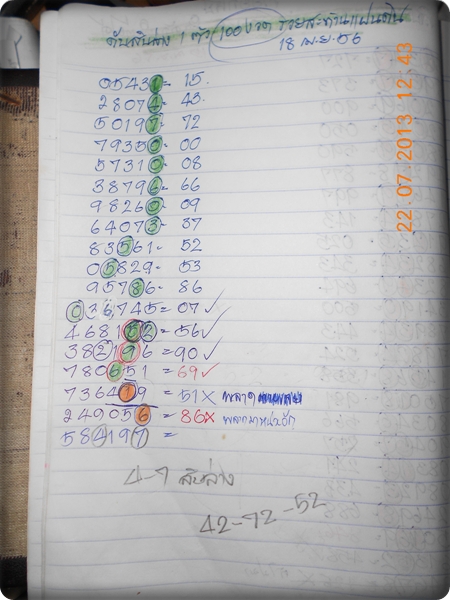 ดับสิบล่าง 1 ตัว (100 งวด รวยสะท้านแผ่นดิน
18 เม.ย. 56
05431- 15.
28074- 43.
50197- 72
79350- 00
57310- 08
38796- 66
98260- 09
64073- 37
83561- 52
05829- 53
95786- 86
036,745 = 07 ✓
468152 = 56 ✓
382196 = 90 ✓
780651 = 69 ✓
736419 = 51 X พลาด
249056 = 86 X พลาดมาหน่วยอีก
584197 =
4-7 สิบล่าง
42-72-52
22.07.2013 12:43